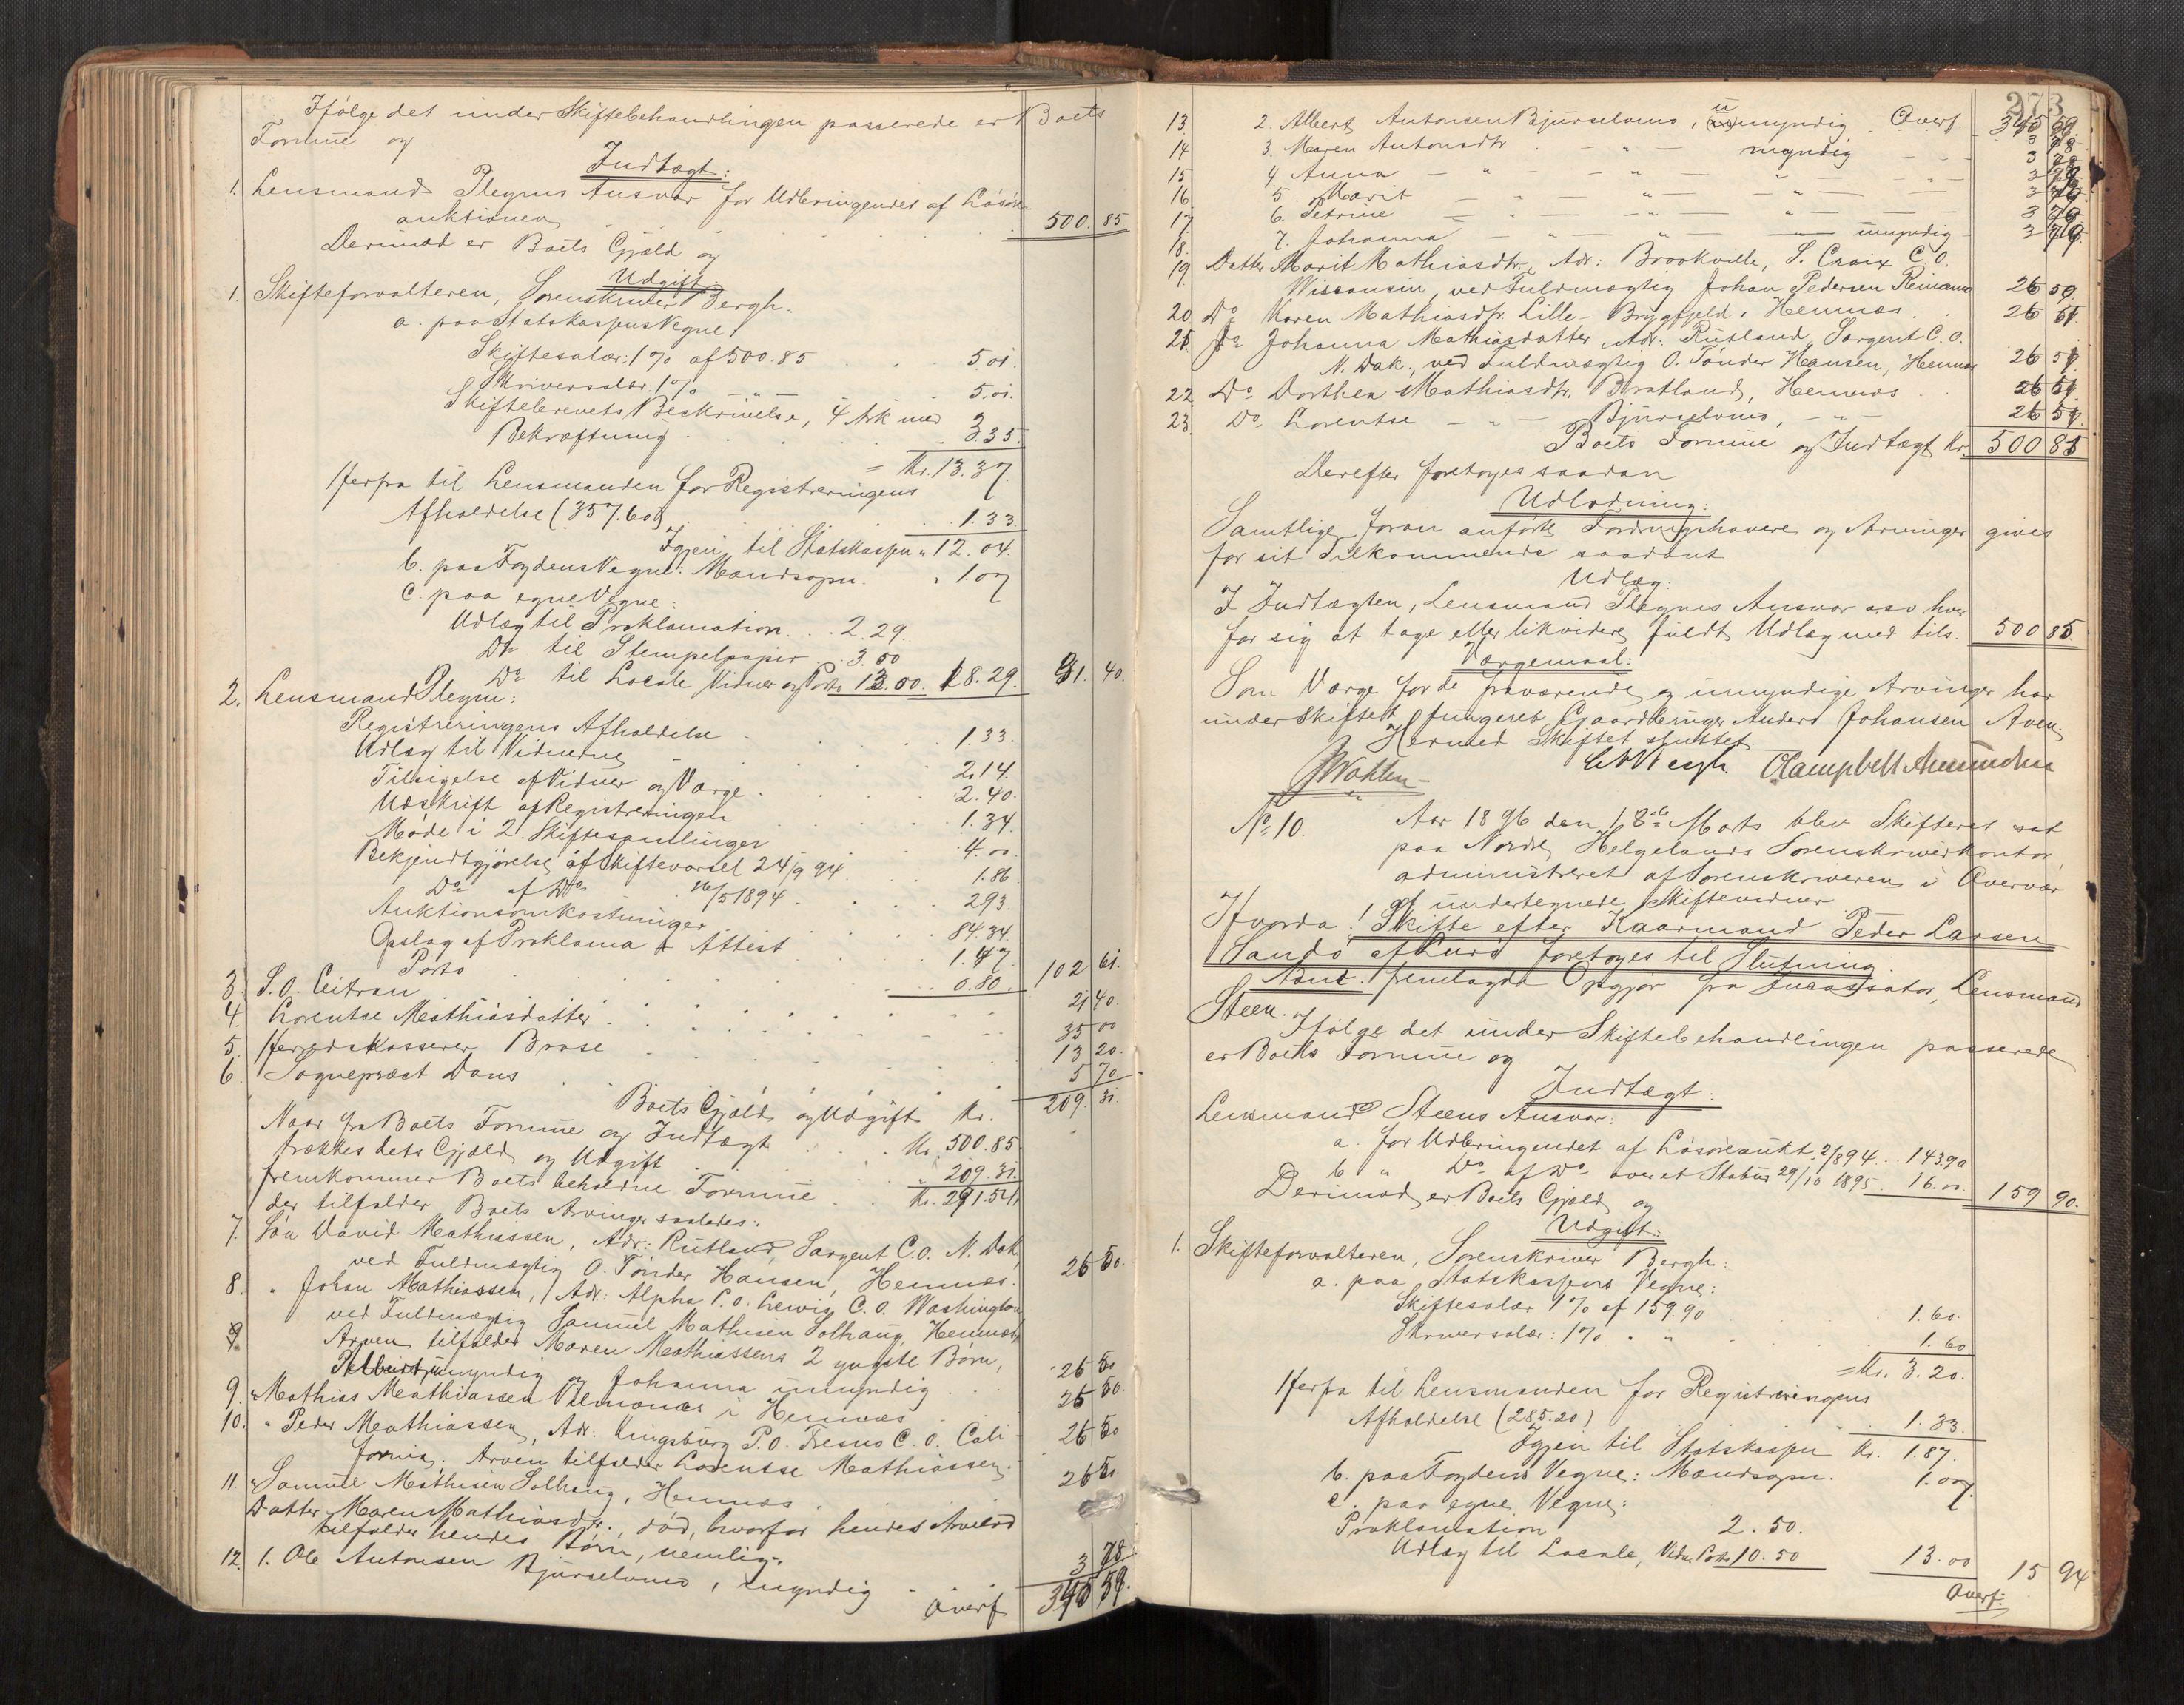 Ifølge det under Skiftebehandlingen passerede er Boets
Formue og
Indtægt:
1. Lensmand Plegms Ansvar for Udbringendet af Løsøre-
auktionen 500. 85.
Derimod er Boets Gjæld og
Udgift
1. Skifteforvalteren, Sorenskriver Bergh.
a. paa Statskassens Vegne:
Skiftesalær: 1% af 500.85 5.01.
Skriversalær: 1% - " - 5.01.
Skiftebrevets Beskrivelse, 4 Ark med
Bekræftning 3.35.
= Kr. 13.37.
Herfra til Lensmanden for Registreringens
Afholdelse (357.60) 1.33.
Igjen til Statskassen " 12.04.
b. paa Fogdens Vegne: Mandsopn. " 1.07
c. paa egne Vegne:
Udlæg til Proklamation 2.29.
Do til Stempelpapir 3.50
Do til Locale, Vidner og Porto 13.00. 18.29. 31. 40.
2. Lensmand Plegm:
Registreringens Afholdelse 1.33.
Udlæg til Vidnerne 2.14.
Tilsigelse af Vidner og Værge 2.40.
Udskrift af Registreringen 1.34.
Møde i 2 Skiftesamlinger 4.00
Bekjendtgjørelse af Skiftevarsel 24/9 94 1.86
Do af Do 16/5 1894 2.93.
Auktionsomkostninger 84.34.
Opslag af Proklama & Attest 1.47.
Porto 0.80. 102 61.
3. S. O. Leitran 21 40.
4. Lorentse Mathiasdatter 35 00
5. Herredskasserer Brase 13 20.
6. Sogneprest Daus 5 70.
Boets Gjæld og Udgift Kr. 209. 31.
Naar fra Boets Formue og Indtægt Kr. 500.85
trækkes dets Gjæld og Udgift " 209.31.
fremkommer Boets beholdne Formue Kr. 291.54
der tilfalder Boets Arvinger saaledes:
7. Søn David Mathiassen, Adr: Rutland, Sargent C.O. N. Dak,
ved Fuldmægtig O. Tønder Hansen, Hemnæs. 26 50.
8. " Johan Mathiassen, Adr: Alpha P.O. Lewis C.O. Washington
ved Fuldmægtig Samuel Mathisen Solhaug, Hemnæs
Arven tilfalder Maren Mathiassens 2 yngste Børn,
umyndig og Johanna umyndig 26 50
9. " Mathias Mathiassen i Hemnæs 26 50.
10. " Peder Mathiassen, Adr: Kingsburg P.O. Fresno C.O. Cali-
fornia. Arven tilfalder Lorentse Mathiassen. 26 50
11. " Samuel Mathisen Solhaug, Hemnæs 26 51.
Datter Maren Mathiasdr., død, hvorfor hendes Arvelod
tilfalder hendes Børn, nemlig:
12. 1. Ole Antonsen Bjurselvmo, myndig 3 78
Overf. 345 59.
273
13. 2. Albert Antonsen Bjurselvmo, umyndig Overf. 345 59
14 3. Maren Antonsdtr - " - myndig 3 78
15 4. Anna - " - " - 3 78
16 5. Marit - " - " - 3 79
17 6. Petrine - " - " - 3 79
18. 7. Johanna - " - " - umyndig 3 79.
19 Datter Marit Mathiasdtr. Adr: Brookville, S. Croix C.O.
Wisconsin, ved Fuldmægtig Johan Pedersen 26 50
20 Do Karen Mathiasdtr. Lille-Brygfjeld i Hemnæs 26 51.
21 Do Johanna Mathiasdatter Adr: Rutland, Sargent C.O.
N. Dak., ved Fuldmægtig O. Tønder Hansen, Hemnæs 26 51
22 Do Dorthea Mathiasdtr. Bratland, Hemnæs 26 51
23. Do. Lorentse - " - Bjurselvmo, - " - 26 51
Boets Formue og Indtægt Kr. 500 85
Derefter foretoges saadan
Udlodning:
Samtlige foran anførte Fordringshavere og Arvinger gives
for sit Tilkommende saadant
Udlæg:
I Indtægten, Lensmand Plegms Ansvar osv hver
for sig at tage eller likvidere fuldt Udlæg med tils. 500 85.
Værgemaal:
Som Værge for de fraværende og umyndige Arvinger har
under Skiftet fungeret Gaardbruger Anders Johansen Aven.
Hermed Skiftet sluttet.
Bergh. Campbell Amundsen
No 10. Aar 1896 den 18de Marts blev Skifteret sat
paa Nordre Helgelands Sorenskriverkontor,
administreret af Sorenskriveren i Overvær
af undertegnede Skiftevidner
Hvorda! Skifte efter Kaarmand Peder Larsen
Sandø af Lurø foretoges til Slutning.
Adm. fremlagde Opgjør fra Incassator, Lensmand
Steen.
Ifølge det under Skiftebehandlingen passerede
er Boets Formue og
Indtægt:
Lensmand Steens Ansvar:
a. for Udbringendet af Løsøreaukt. 2/8 94 143.90
b " Do af Do over et Stabur 29/10 1895 16.00. 159 90.
Derimod er Boets Gjæld og
Udgift:
1. Skifteforvalteren, Sorenskriver Bergh:
a. paa Statskassens Vegne:
Skiftesalær 1% af 159.90 1.60.
Skriversalær: 1% " " 1.60
= Kr. 3.20.
Herfra til Lensmanden for Registreringens
Afholdelse (285.20) 1.33.
Igjen til Statskassen Kr. 1.87.
b. paa Fogdens Vegne: Mandsopn. 1.07.
c. paa egne Vegne:
Proklamation 2.50.
Udlæg til Locale, Vidn. Porto 10.50 13.00 15 94
Overf: